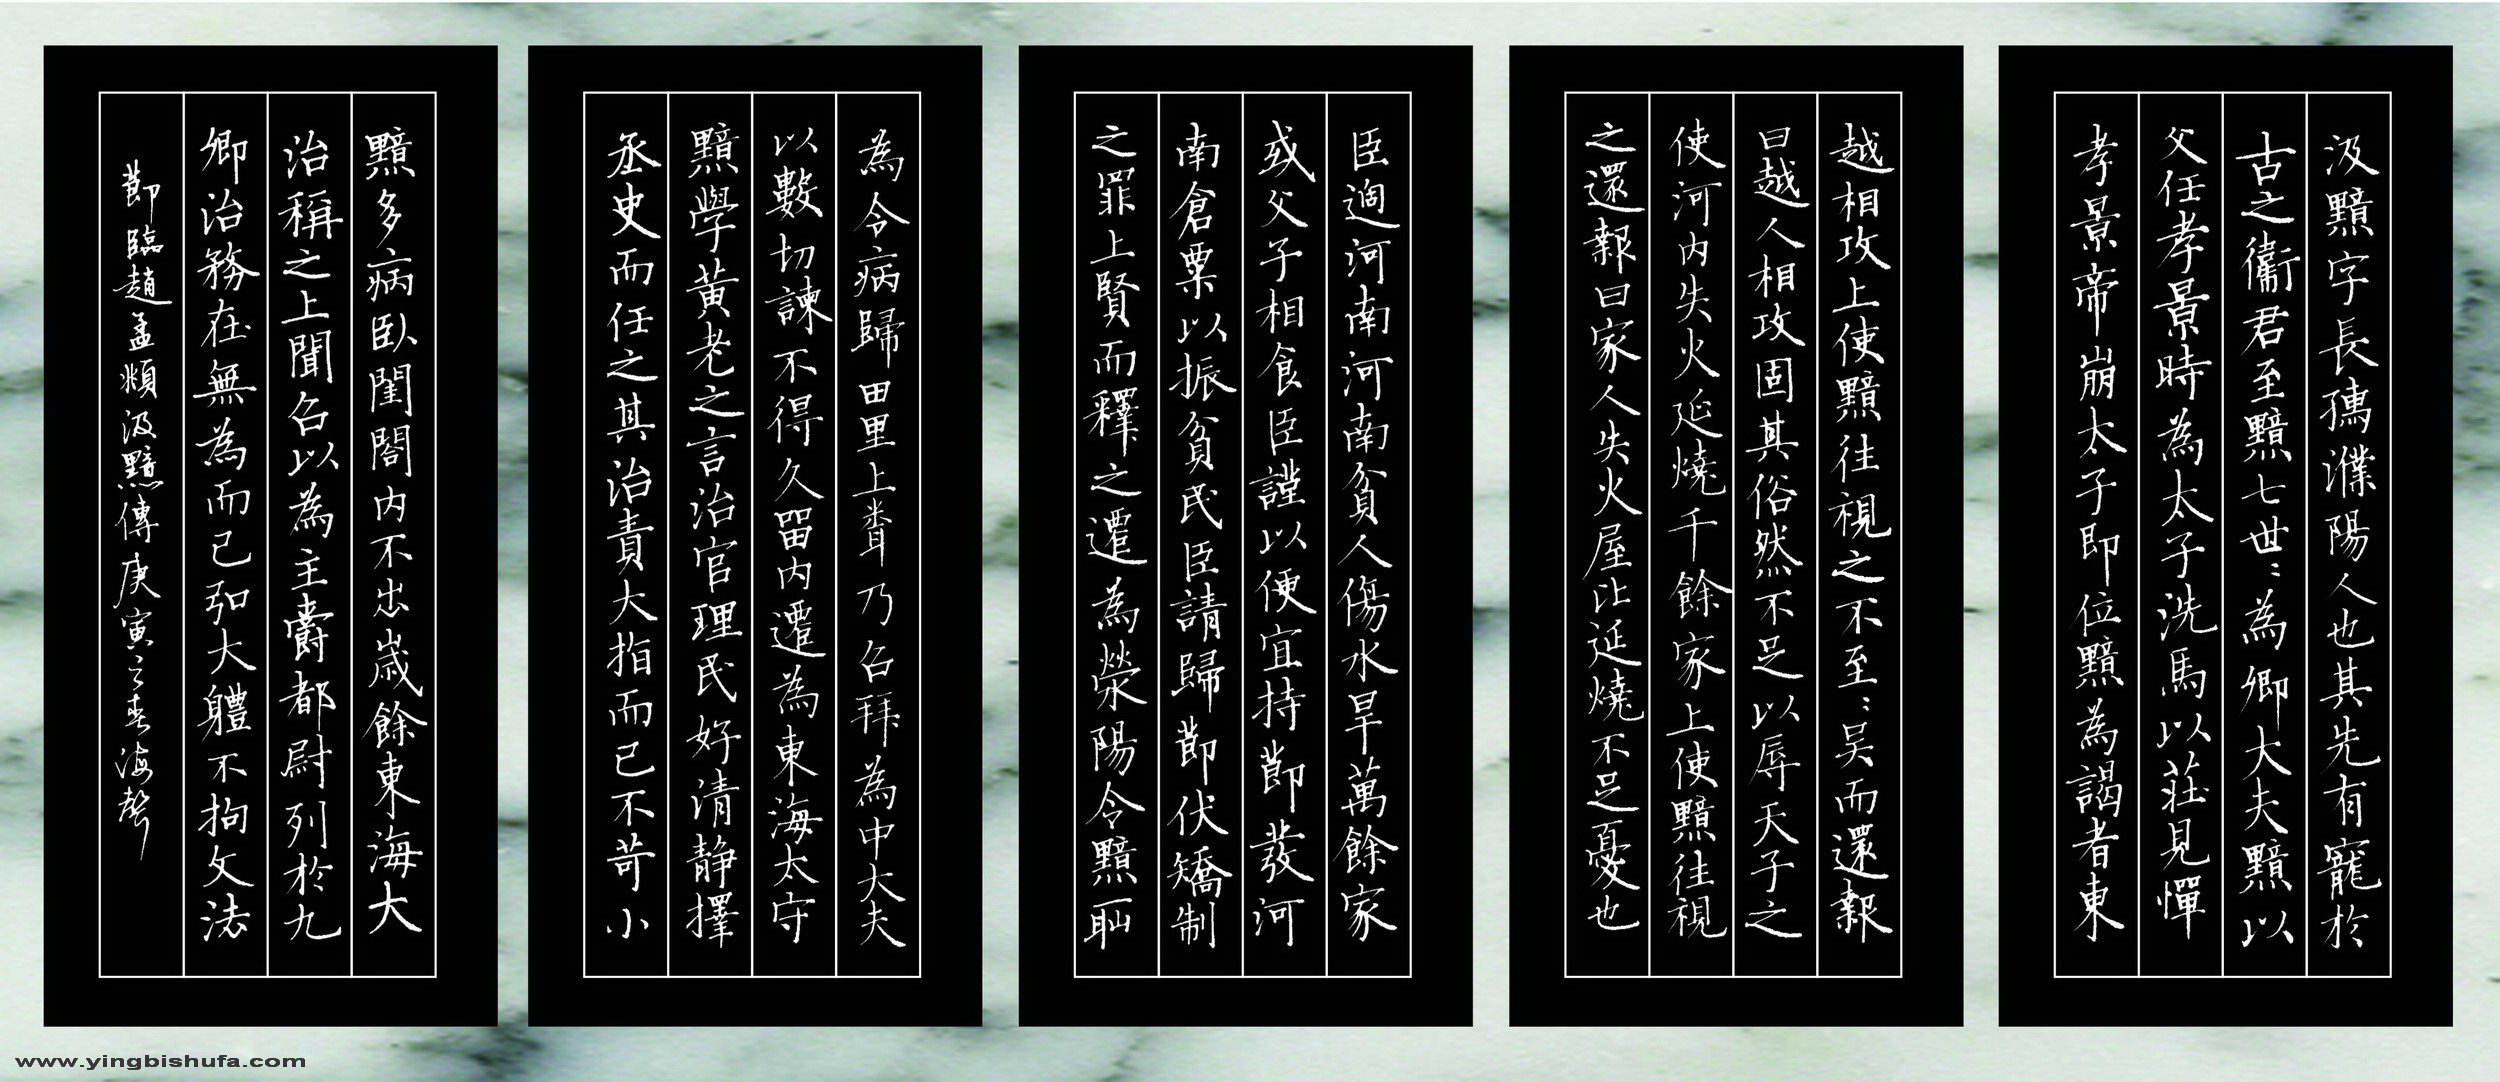 汲黯字長孺濮陽人也其先有寵於
古之衞君至黯七世〻為卿大夫黯以
父任孝景時為太子洗馬以莊見憚
孝景帝崩太子即位黯為謁者東
越相攻上使黯往視之不至〻吴而還報
曰越人相攻固其俗然不足以辱天子之
使河内失火延燒千餘家上使黯往視
之還報曰家人失火屋比延燒不足憂也
臣過河南河南貧人傷水旱萬餘家
或父子相食臣謹以便宜持節發河
南倉粟以振貧民臣請歸節伏矯制
之罪上賢而釋之遷為滎陽令黯耻
為令病歸田里上聞乃召拜為中大夫
以數切諫不得久留内遷為東海太守
黯學黄老之言治官理民好清静擇
丞史而任之其治責大指而已不苛小
黯多病卧閨閤内不出歲餘東海大
治稱之上聞召以為主爵都尉列於九
卿治務在無為而已弘大體不拘文法
節臨趙孟頫汲黯傳庚寅之春海聲
www.yingbishufa.com